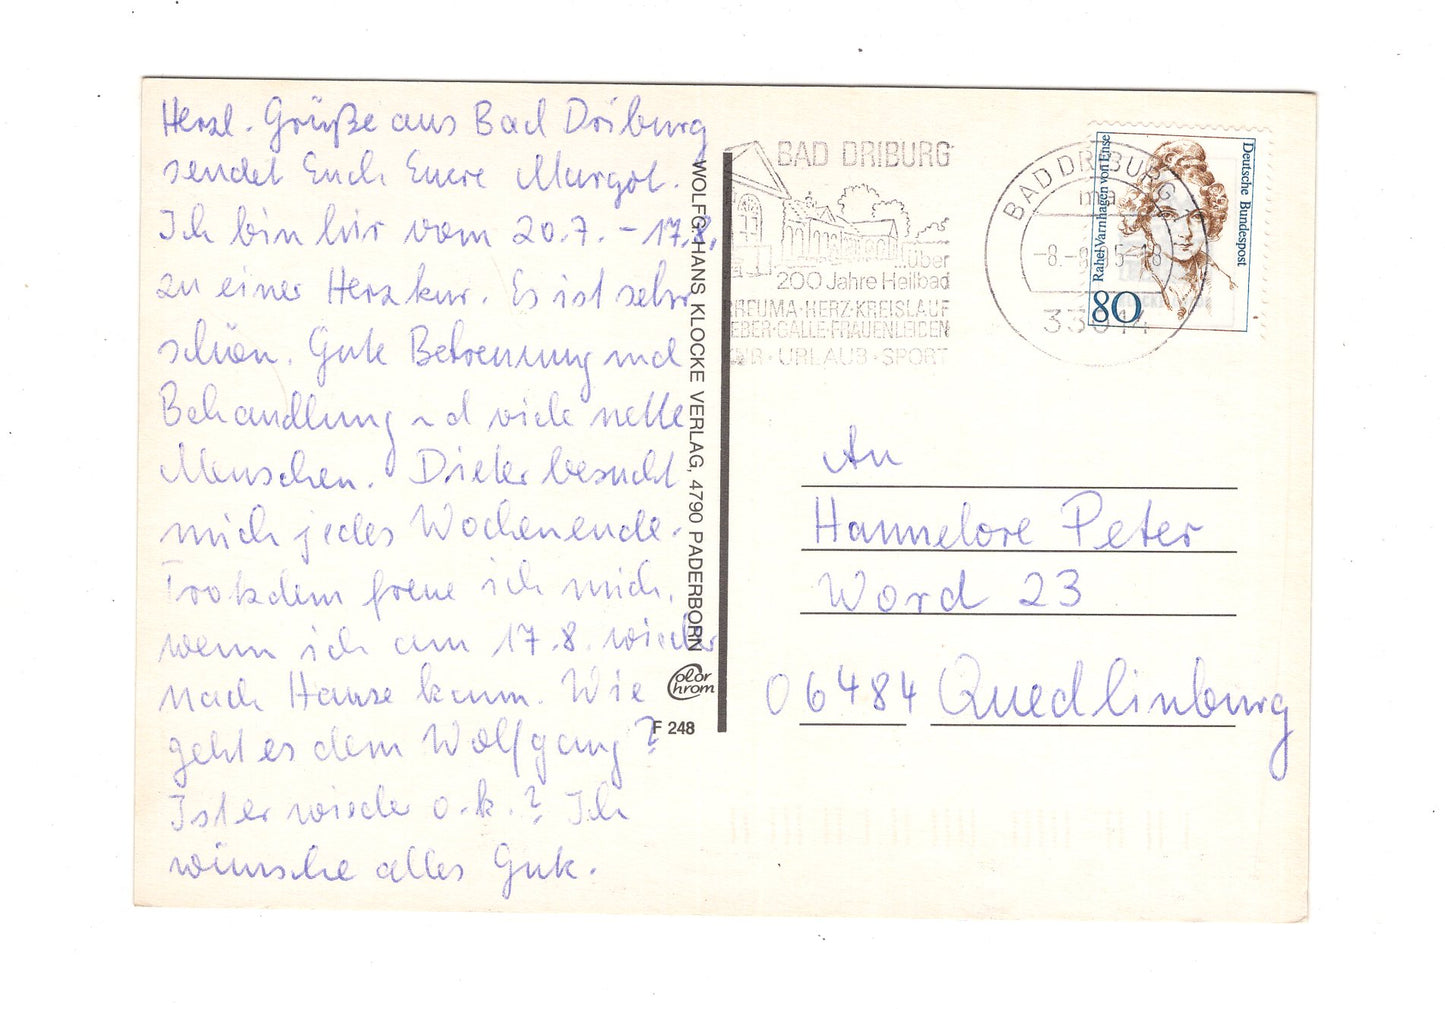 Herzl. Grüße aus Bad Driburg
sendet Euch Euere Margot.
Ich bin hier vom 20.7. - 17.8.
zu einer Herzkur. Es ist sehr
schön. Gute Betreuung und
Behandlung und viele nette
Menschen. Dieter besucht
mich jedes Wochenende.
Trotzdem freue ich mich,
wenn ich am 17.8. wieder
nach Hause kann. Wie
geht es dem Wolfgang?
Ist er wieder o.k.? Ich
wünsche alles Gute.
WOLFG. HANS KLOCKE VERLAG, 4790 PADERBORN
Color
Chrom
F 248
BAD DRIBURG
...über
200 Jahre Heilbad
RHEUMA·HERZ·KREISLAUF
LEBER·GALLE·FRAUENLEIDEN
KUR·URLAUB·SPORT
BAD DRIBURG
ma
-8.-8.95-18
33014
Deutsche Bundespost
Rahel Varnhagen von Ense
80
An
Hannelore Peter
Word 23
06484 Quedlinburg